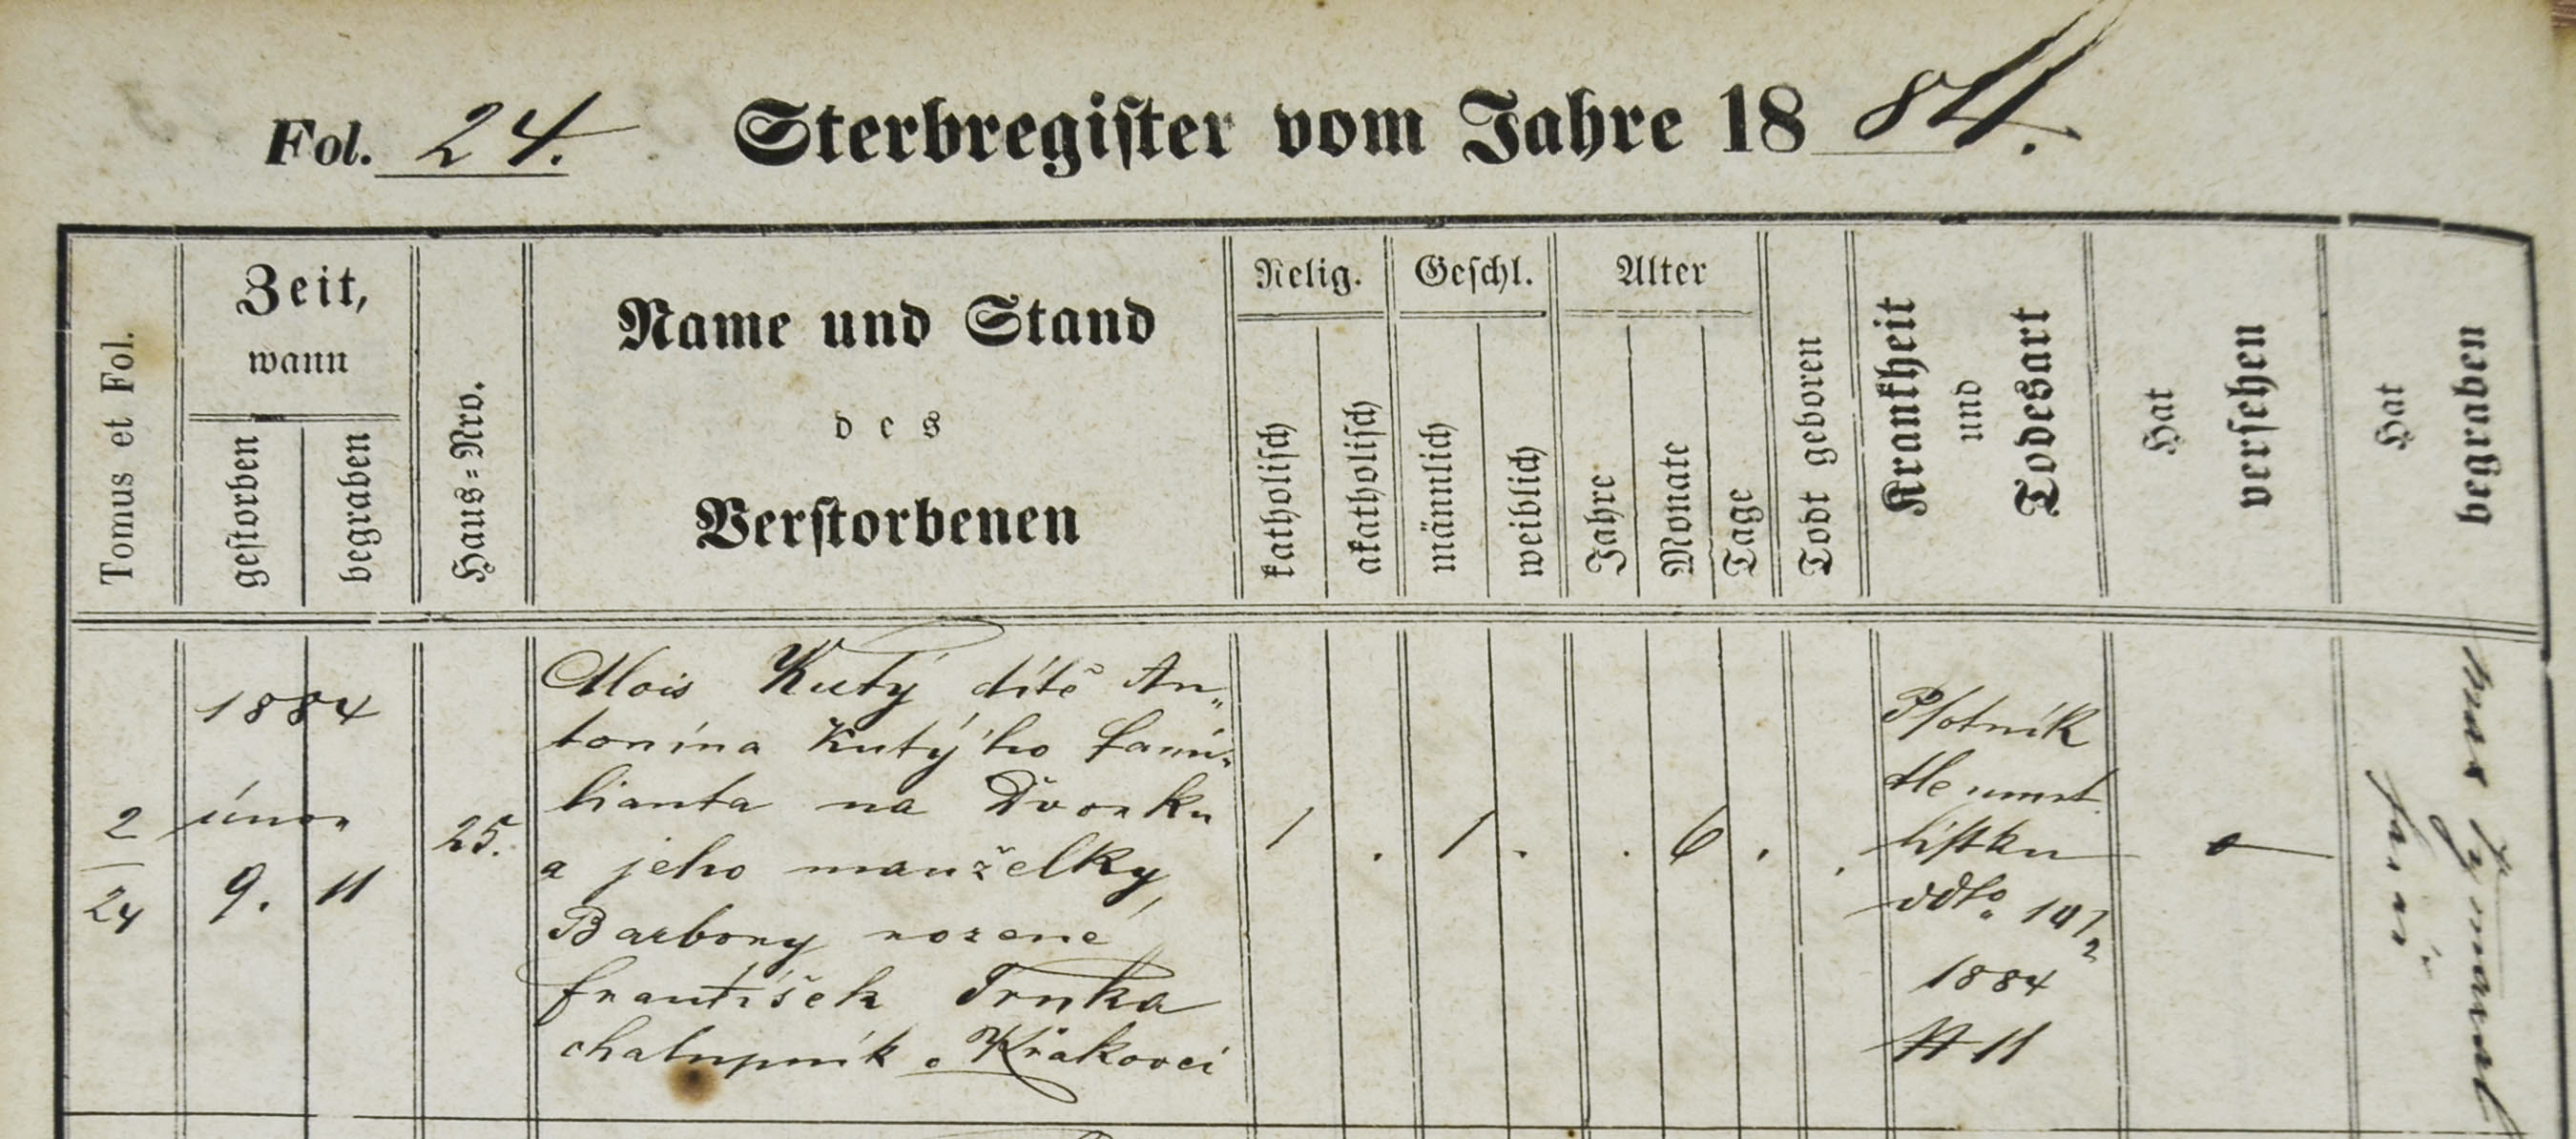 Fol. 24. Sterbregister vom Jahre 1884.
Tomus et Fol.
Zeit,
wann
gestorben
begraben
Haus-Nro.
Name und Stand
des
Verstorbenen
Relig.
katholisch
akatholisch
Geschl.
männlich
weiblich
Alter
Jahre
Monate
Tage
Todt geboren
Krankheit
und
Todesart
Hat
versehen
Hat
begraben
2
24
1884
únor
9. 11
25.
Alois Kutý dítě An„
tonína Kutý'ho fami„
lianta na Dvorku
a jeho manželky,
Barbory rozené
František Trnka
chalupník v Křakovci
1 . 1 . . 6 . .
Psotník
dle úmrt.
lístku
ddto. 10/2
1884
# 11
farář